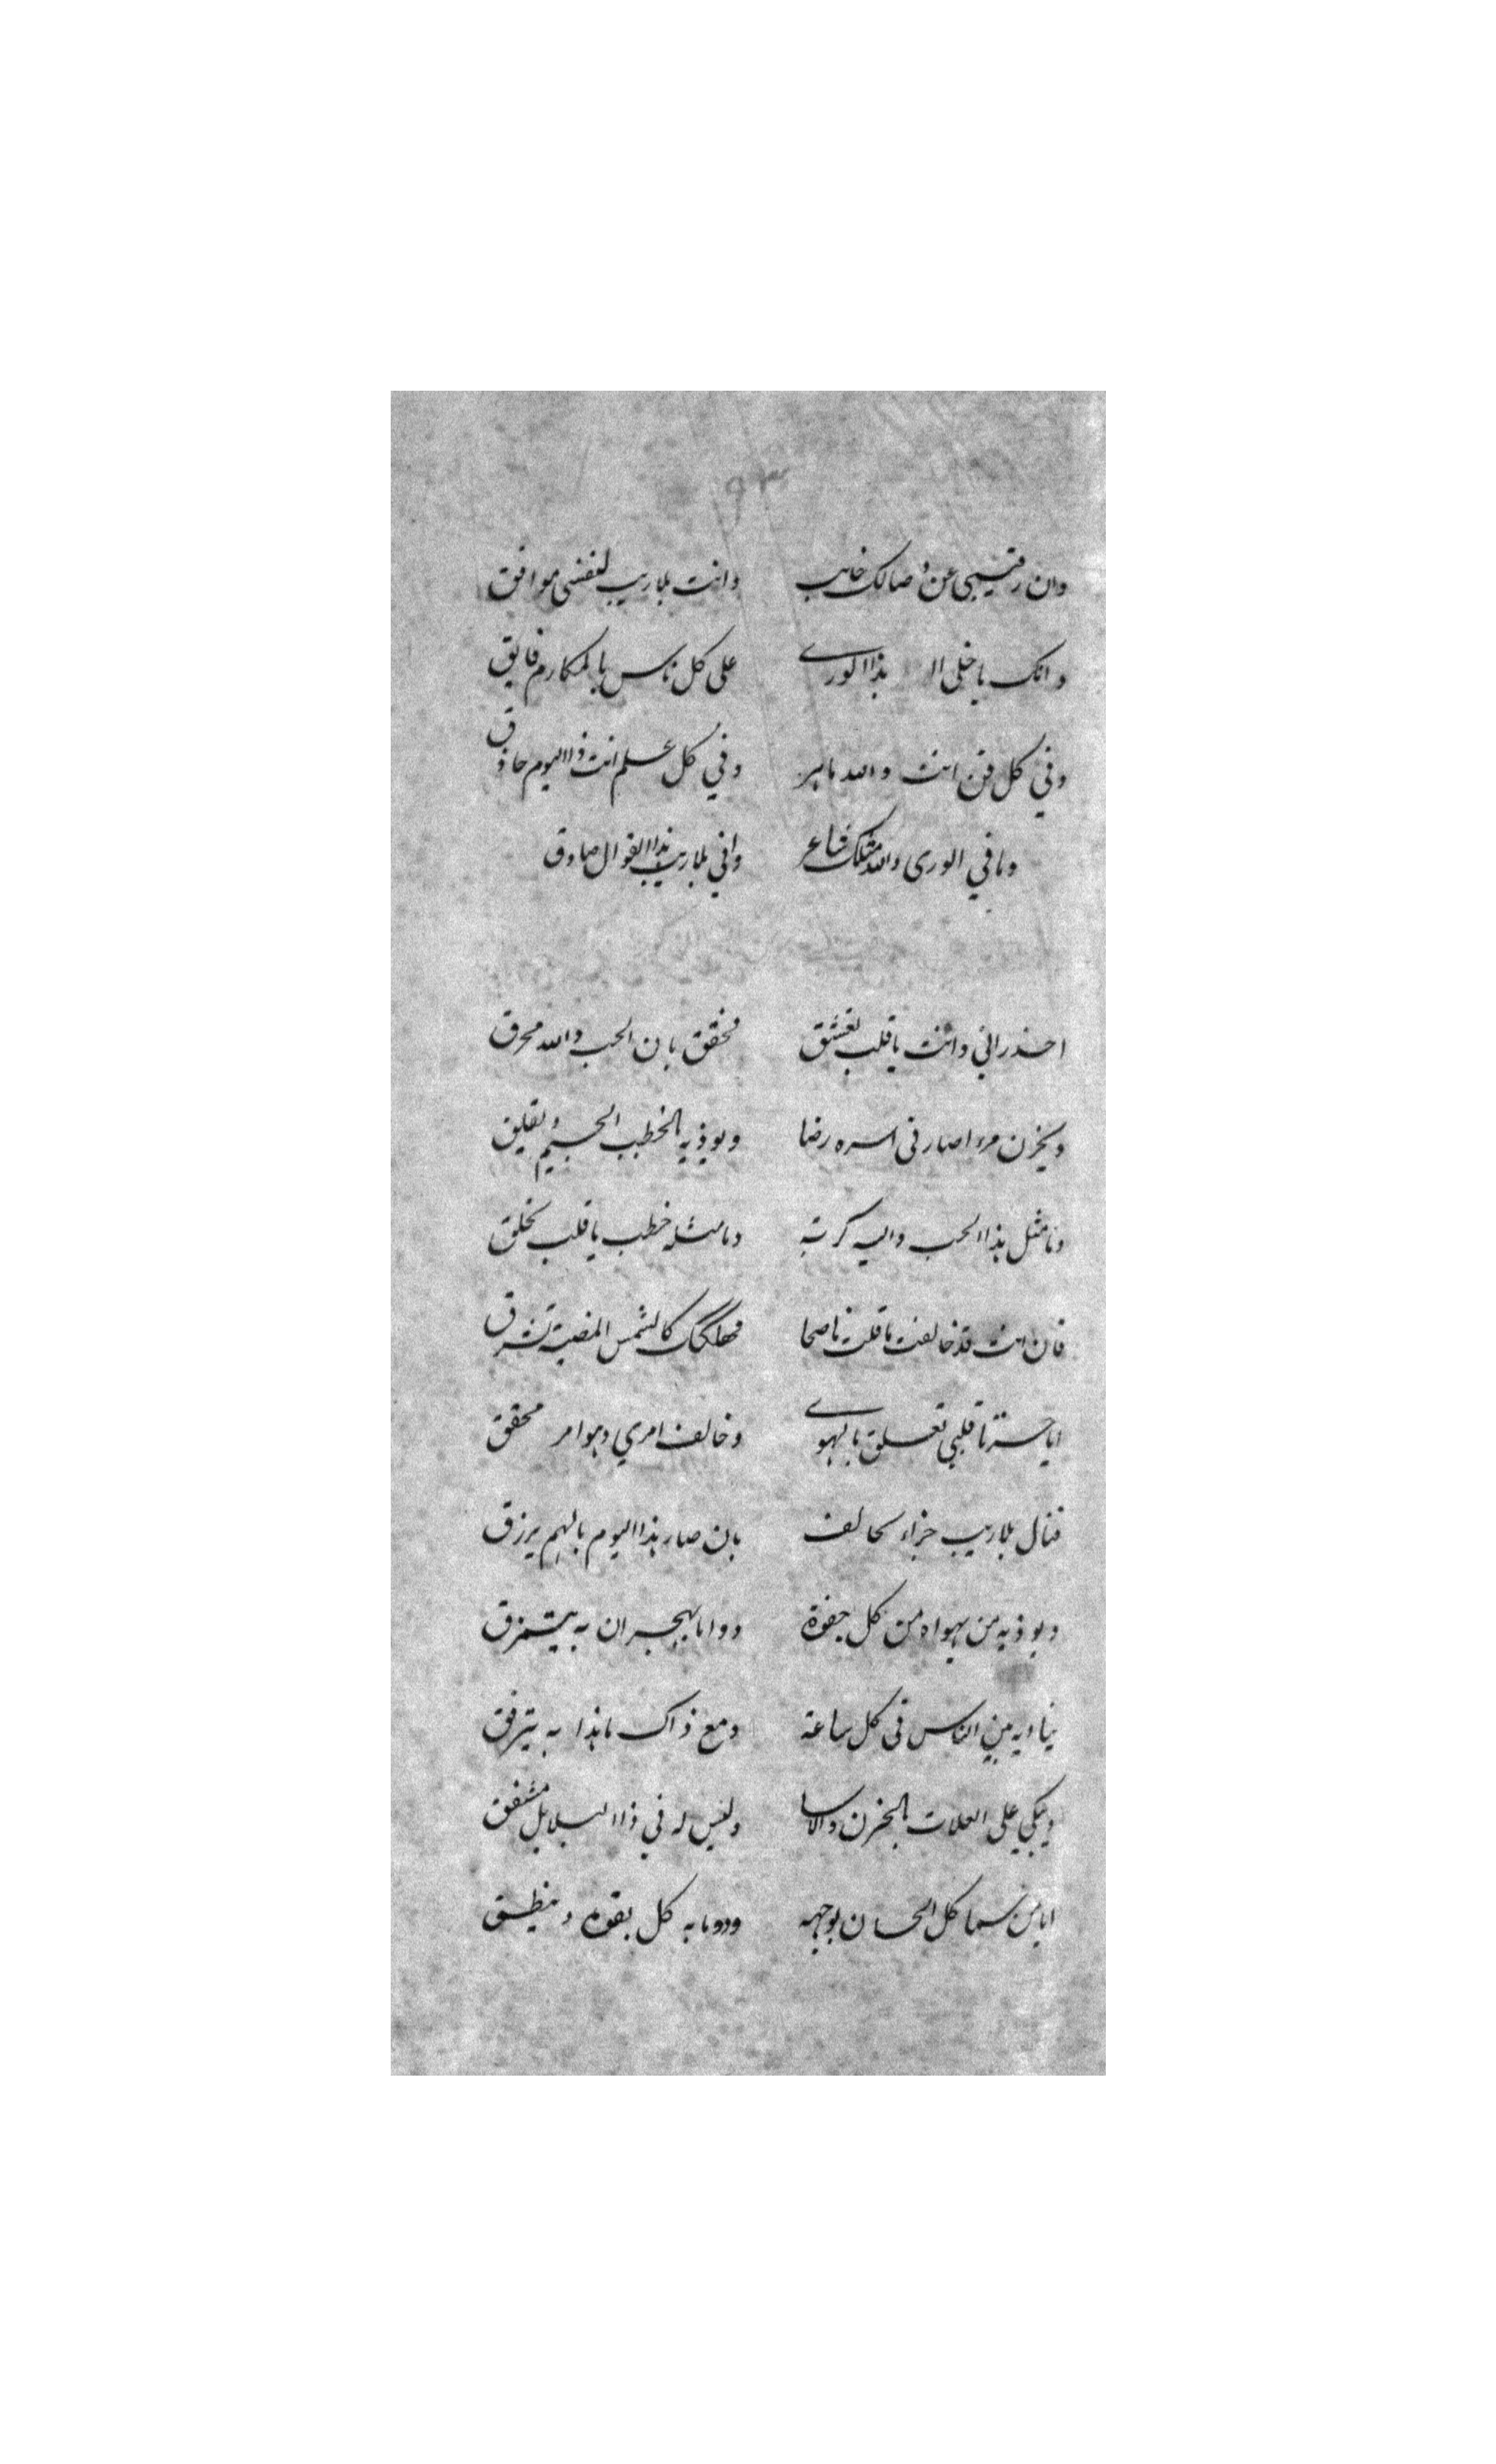 ٩٣
وان رقيبي عن وصالك خايب وانت بلا ريب لنفسي موافق
وانك يا خلي هذا الورى على كل ناس بالمكارم فايق
وفي كل فن انت والله ماهر وفي كل علم انت ذا اليوم حاذق
وما في الورى والله مثلك شاعر واني بلا ريب بذا القوال صادق
احذراني وانت يا قلب تعشق تحقق بان الحب والله محرق
ويحزن مرء صار في اسره رضا ويوذيه بالخطب الجسيم ويقلق
وما مثل هذا الحب والله كربة وما مثله خطب يا قلب يخلق
فان انت قد خالفت ما قلت ناصحا فهلكك كالشمس المضية تشرق
ايا حسرتا قلبي تعلق بالهوى وخالف امري وهو امر محقق
فنال بلا ريب جزاء مخالف بان صار هذا اليوم بالهم يرزق
ويوذيه من يهواه من كل جفوة ودوما بهجران به يتمزق
يناديه بين الناس في كل ساعة ومع ذاك ما هذا به يترفق
ويبكي على العلات بالحزن والاسا وليس له في ذا البلابل مشفق
ايا من سما كل الحسان بوجهه ودوما به كل يفوه وينطق